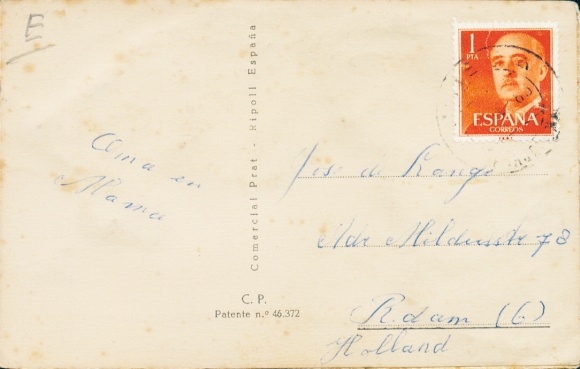 E
1
PTA
ESPAÑA
CORREOS
Comercial Prat - Ripoll España
Oma en
Mama
de
78
R.dam (6)
Holland
C. P.
Patente n.º 46.372